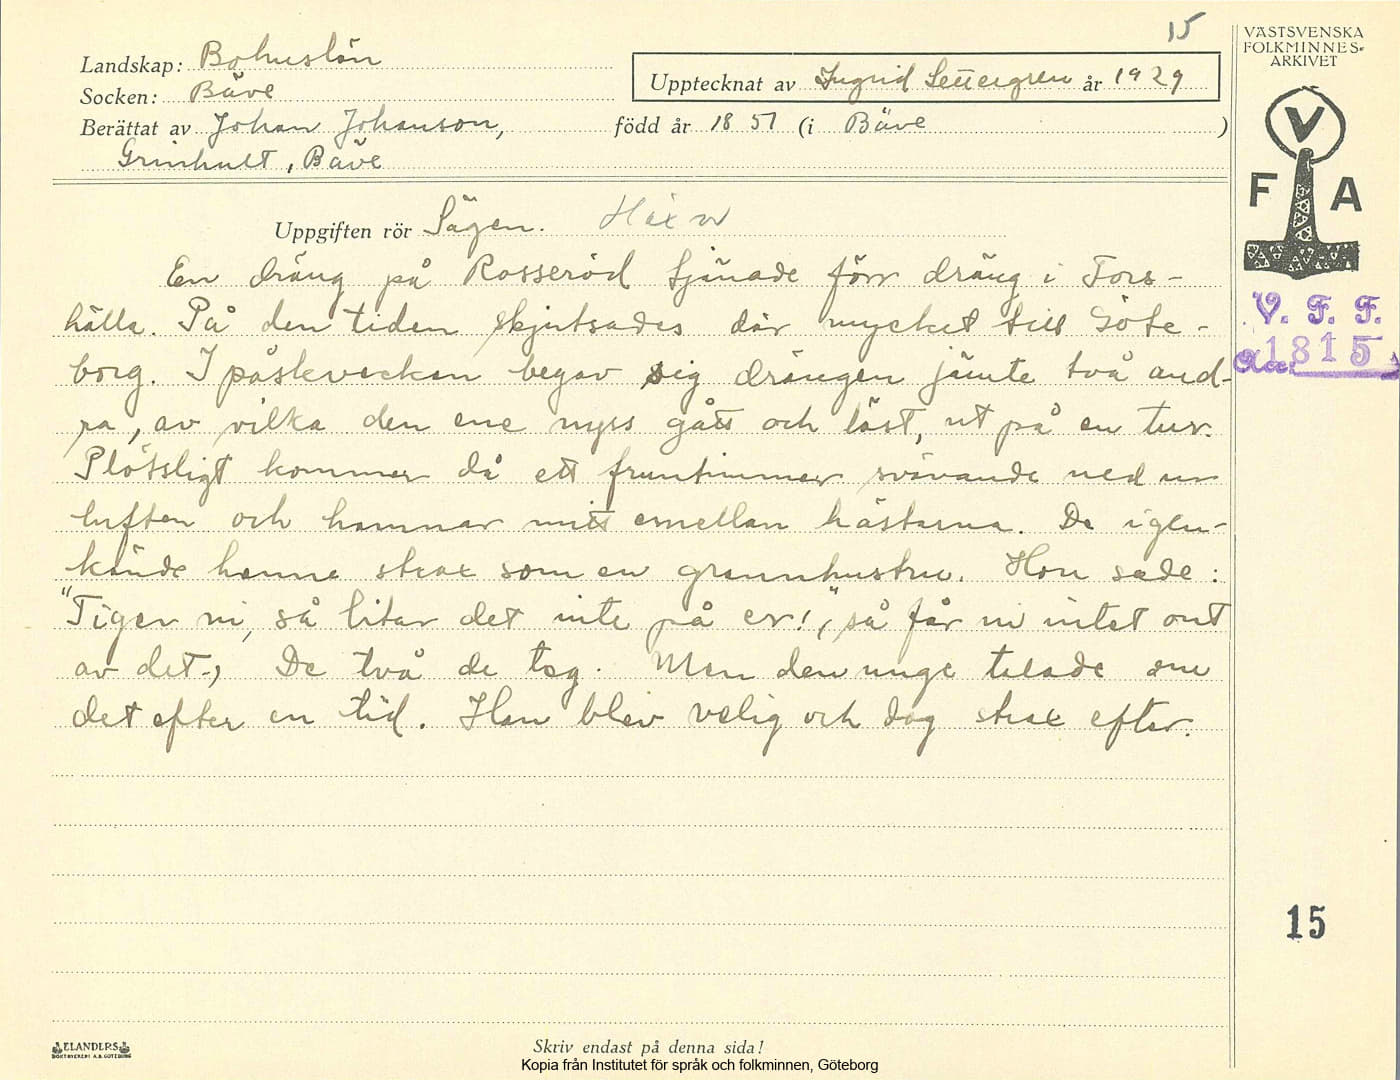 15
VÄSTSVENSKA
FOLKMINNES-
ARKIVET
Landskap: Bohuslän
Socken: Bäve
Upptecknat av Ingrid Settergren år 1929
Berättat av Johan Johanson, född år 1851 (i Bäve )
Grinhult, Bäve
V
F A
Uppgiften rör Sägen. Häxor
En dräng på Rosseröd tjänade förr dräng i Fors-
hälla. På den tiden skjutsades där mycket till Göte-
borg. I påskveckan begav sig drängen jämte två and-
ra, av vilka den ene nyss gått och läst, ut på en tur.
Plötsligt kommer då ett fruntimmer svävande ned ur
luften och hamnar mitt emellan hästarna. De igen-
kände henne strax som en grannhustru. Hon sade:
"Tiger ni, så litar det inte på er!", så får ni intet ont
av det., De två de teg. Men den unge talade om
det efter en tid. Han blev velig och dog strax efter.
V. F. F.
1815
15
ELANDERS
BOKTRYCKERI A.B. GÖTEBORG
Skriv endast på denna sida!
Kopia från Institutet för språk och folkminnen, Göteborg